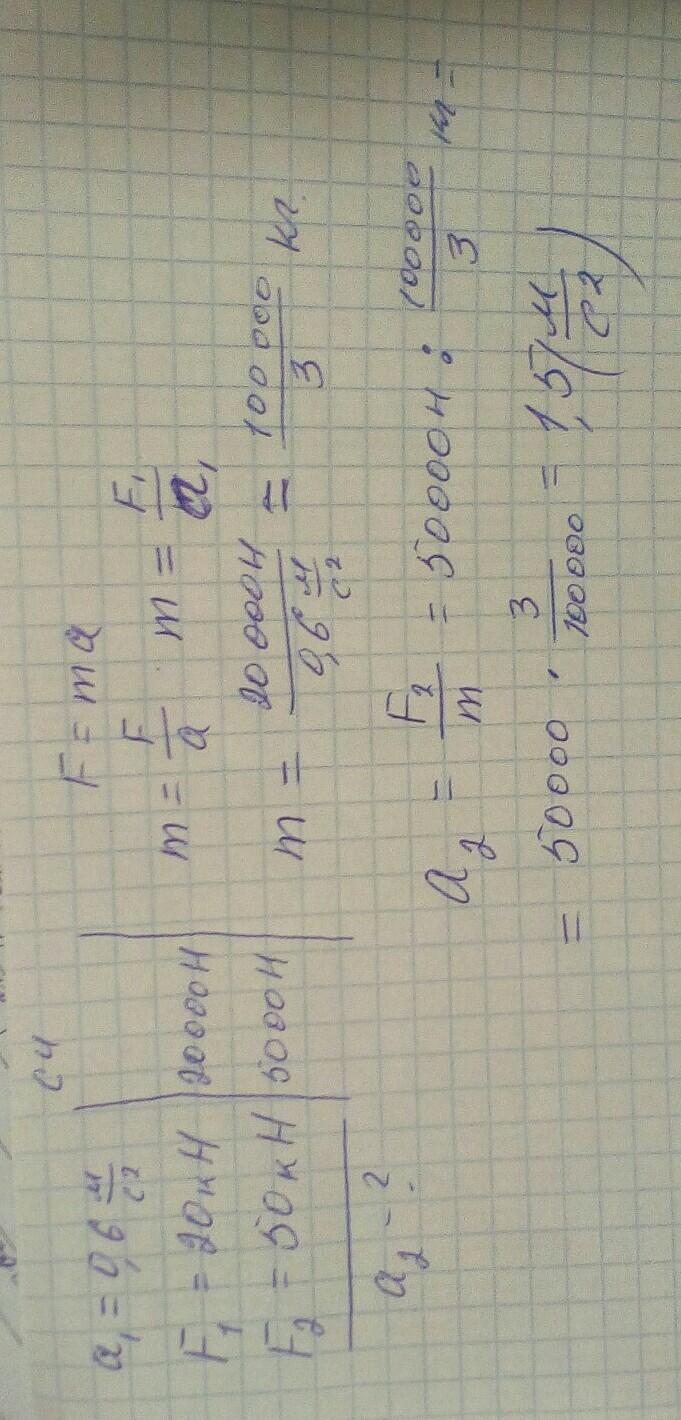 СИ
a₁ = 0,6 м/с²
F₁ = 20кН | 20000Н
F₂ = 50кН | 5000Н
a₂ - ?
F = ma
m = F/a m = F₁/a₁
m = 20000Н / 0,6 м/с² = 100 000 / 3 кг.
a₂ = F₂/m = 50000Н : 100000/3 м =
= 50000 · 3/100000 = 1,5 (м/с²)